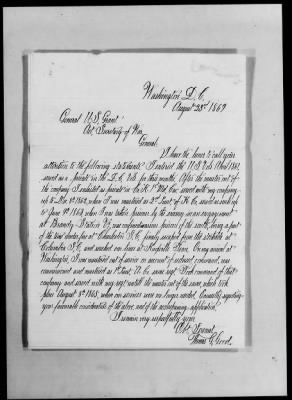 Washington D. C.
August 23d 1869
General U S Grant
Act Secretary of War
General:
I have the honor to call your
attention to the following statement. I entered the U S Vols 1861,
served as a private in the D. C. Vols for three months. After the muster out of
the company I enlisted as private in Co. 1st Md. Cav. served with my company
up to Dec. 1862, when I was mustered in 2d Lieut. of Co. served as such up
to June 9th 1863 when I was taken prisoner by the enemy in an engagement
at Brandy Station Va, was confined in various prisons of the south, being a part
of the time under fire at Charleston S. C. finally escaped from the stockade at
Columbia S. C. and reached our lines at Knoxville Tenn. On my arrival at
Washington, I was mustered out of service on account of
commissioned and mustered as 1st Lieut. Co. same regt. Took command of that
company and served with my regt until the muster out of the same, which took
place August 8th 1865, when our services were no longer needed. Earnestly requesting
your favorable consideration of the above, and of the accompanying application,
I remain very respectfully your
Obt. Servant